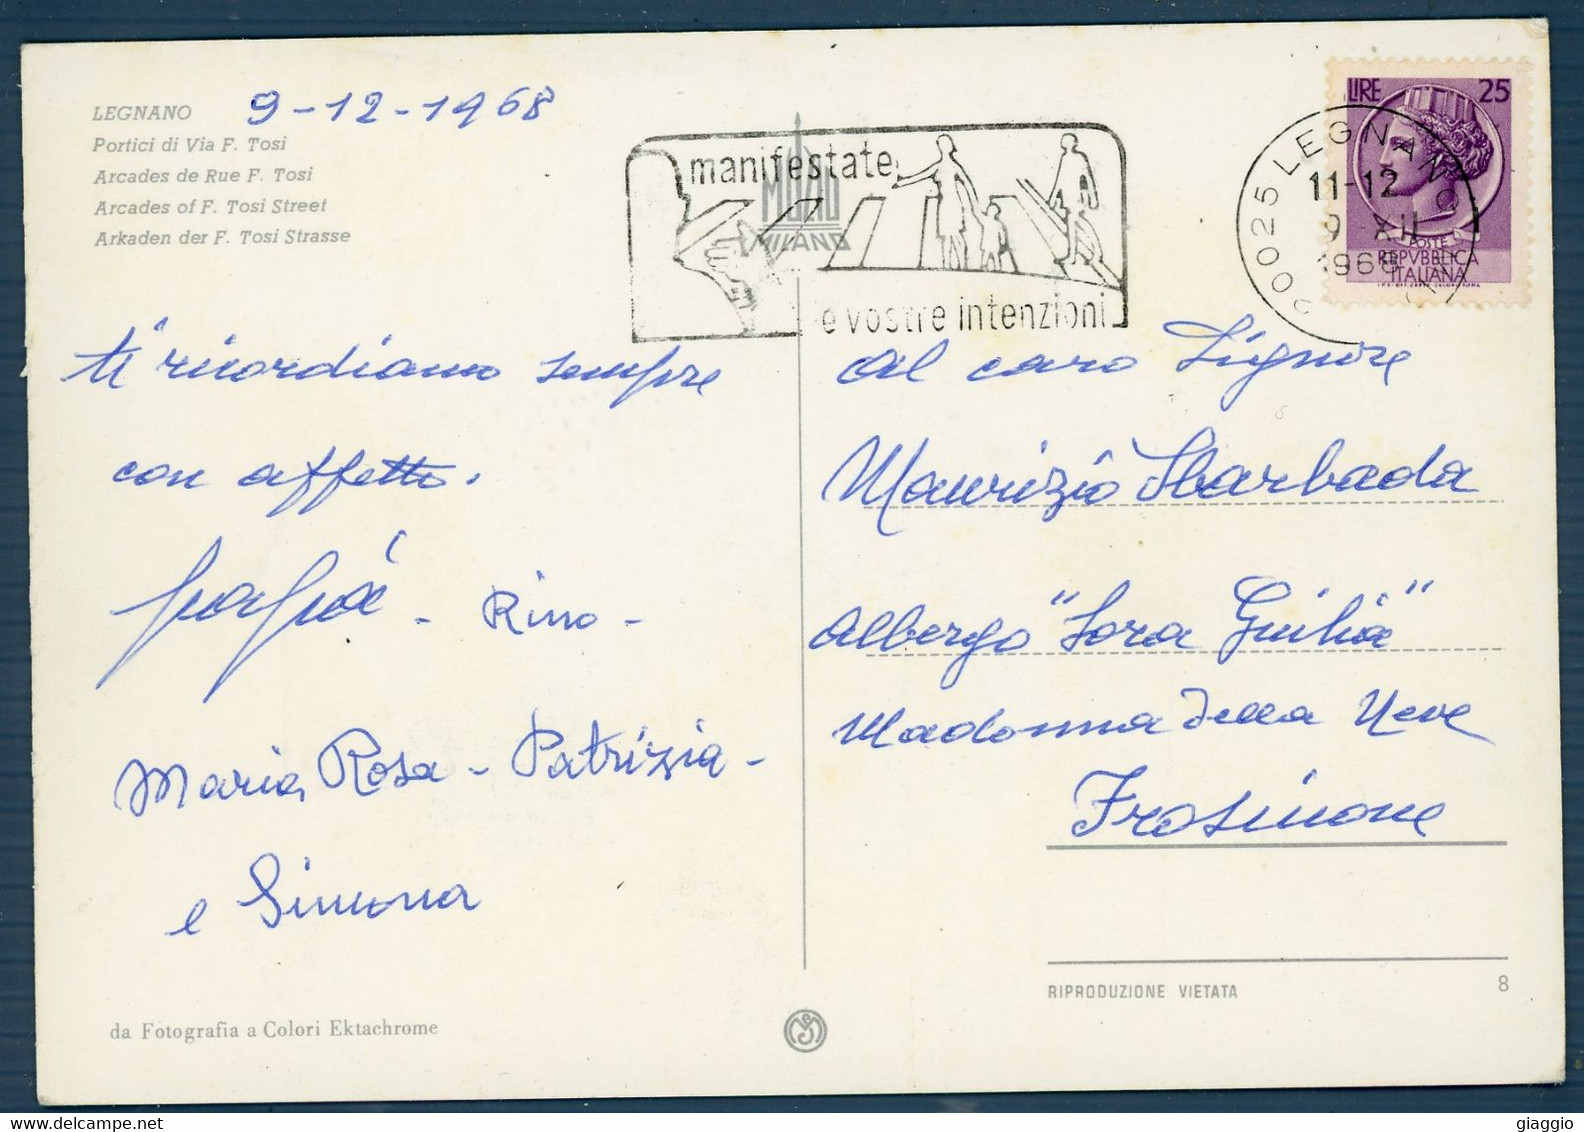 LEGNANO 9-12-1968
Portici di Via F. Tosi
Arcades de Rue F. Tosi
Arcades of F. Tosi Street
Arkaden der F. Tosi Strasse
ti ricordiamo sempre
con affetto.
papà - Rino -
Maria Rosa - Patrizia -
e Simona
da Fotografia a Colori Ektachrome
manifestate
MILANO
e vostre intenzioni
20025 LEGNANO
11-12
9 XII
1968
LIRE 25
POSTE
REPVBBLICA
ITALIANA
Al caro Signore
Maurizio Sbarbada
Albergo "Sora Giulia"
Madonna della Neve
Frosinone
RIPRODUZIONE VIETATA
8
giaggio